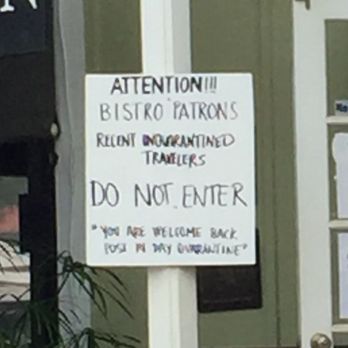 N
ATTENTION!!!
BISTRO PATRONS
RECENT UNQUARANTINED
TRAVELERS
DO NOT ENTER
"YOU ARE WELCOME BACK
POST 14 DAY QUARANTINE"